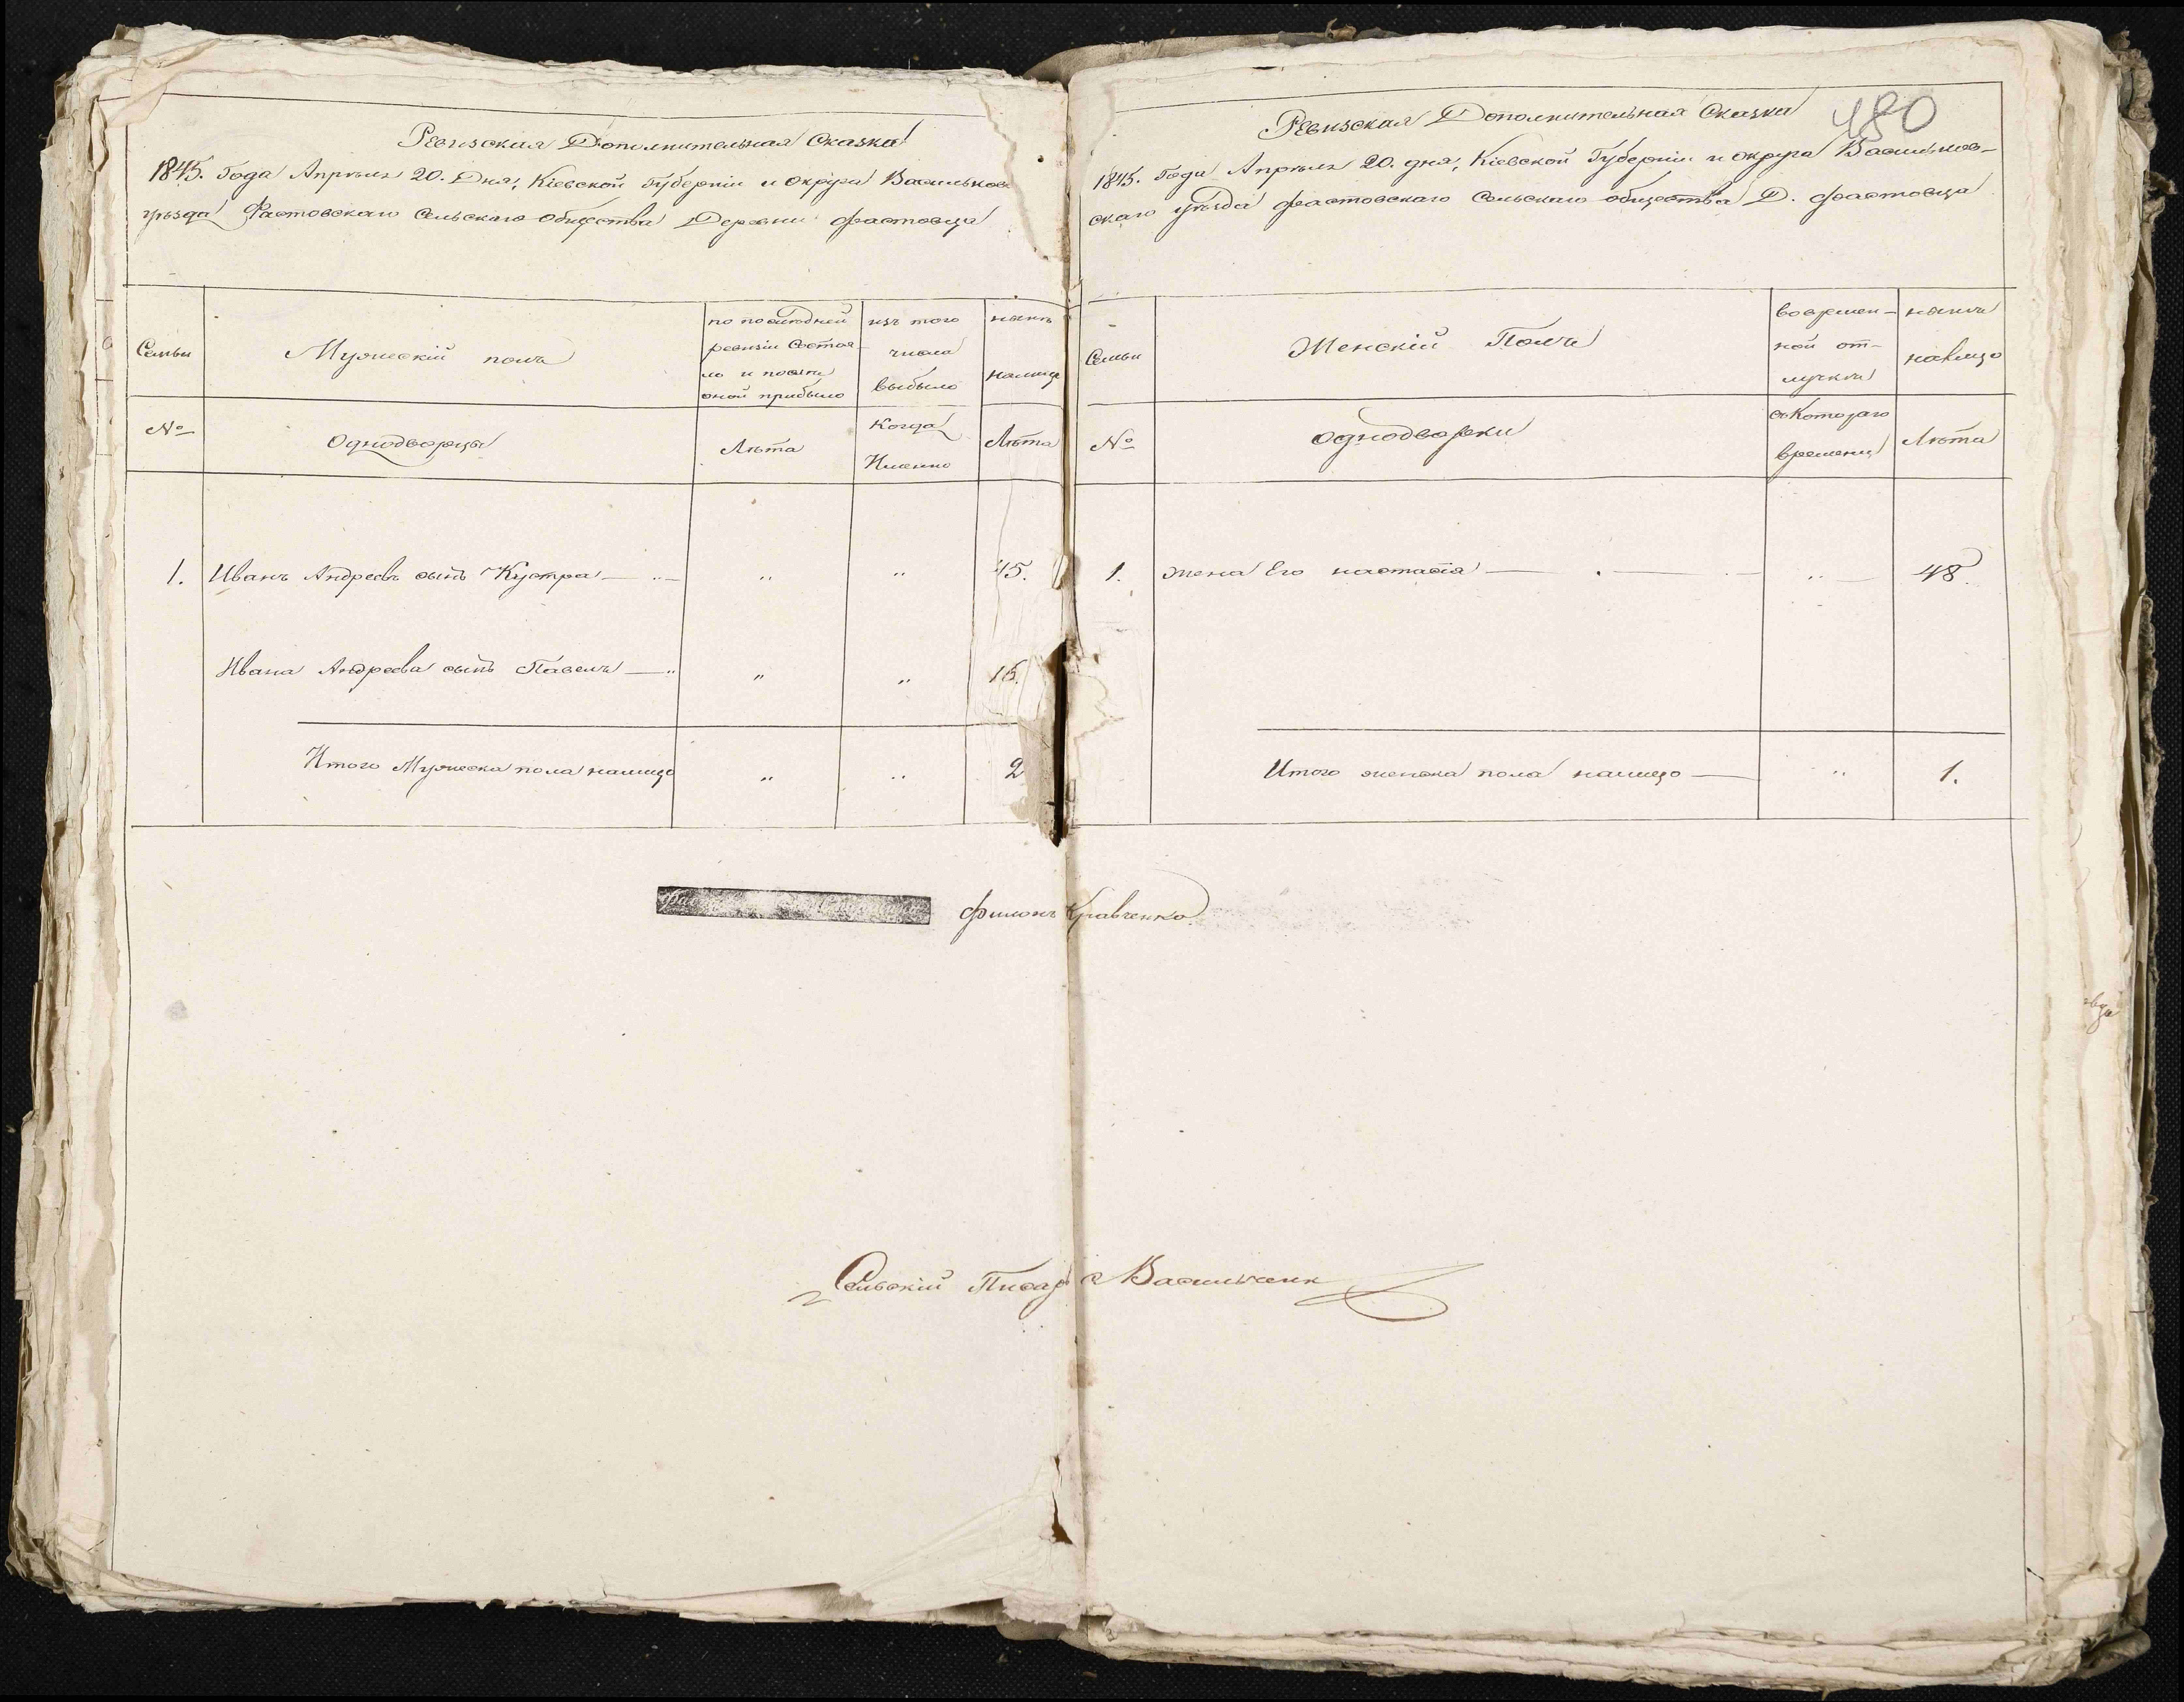 Ревизская Дополнительная Сказка
1845. Года Апрѣля 20. Дня, Кіевской Губерніи и Округа Васильков
уѣзда Фастовскаго Сельскаго Общества Деревни Фастовца
Семьи
Мужескій полъ
по последней
ревизіи состоя-
ло и после
оной прибыло
изъ того
числа
выбыло
нынѣ
налицо
№
Однодворцы
Лѣта
Когда
Именно
Лѣта
1. Иванъ Андреевъ сынъ Кустра 45.
Ивана Андреева сынъ Павелъ 15.
Итого Мужеска пола налицо 2
480
Ревизская Дополнительная Сказка
1845. Года Апрѣля 20. дня, Кіевской Губерніи и округа Васильков-
скаго уѣзда Фастовскаго Сельскаго общества Д. Фастовца
Семьи
Женскій Полъ
во времен-
ной от-
лучки
нынѣ
налицо
№
однодворки
съ Котораго
времени
Лѣта
1. жена Его настасія 48.
Итого женска пола налицо 1.
Филонъ Кравченко
Сельскій Писарь Васильченк